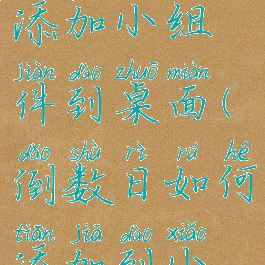 添加小组
jiàn dào zhuō miàn
件到桌面(
dào shù rì rú hé
倒数日如何
tiān jiā dào xiǎo
添加到小